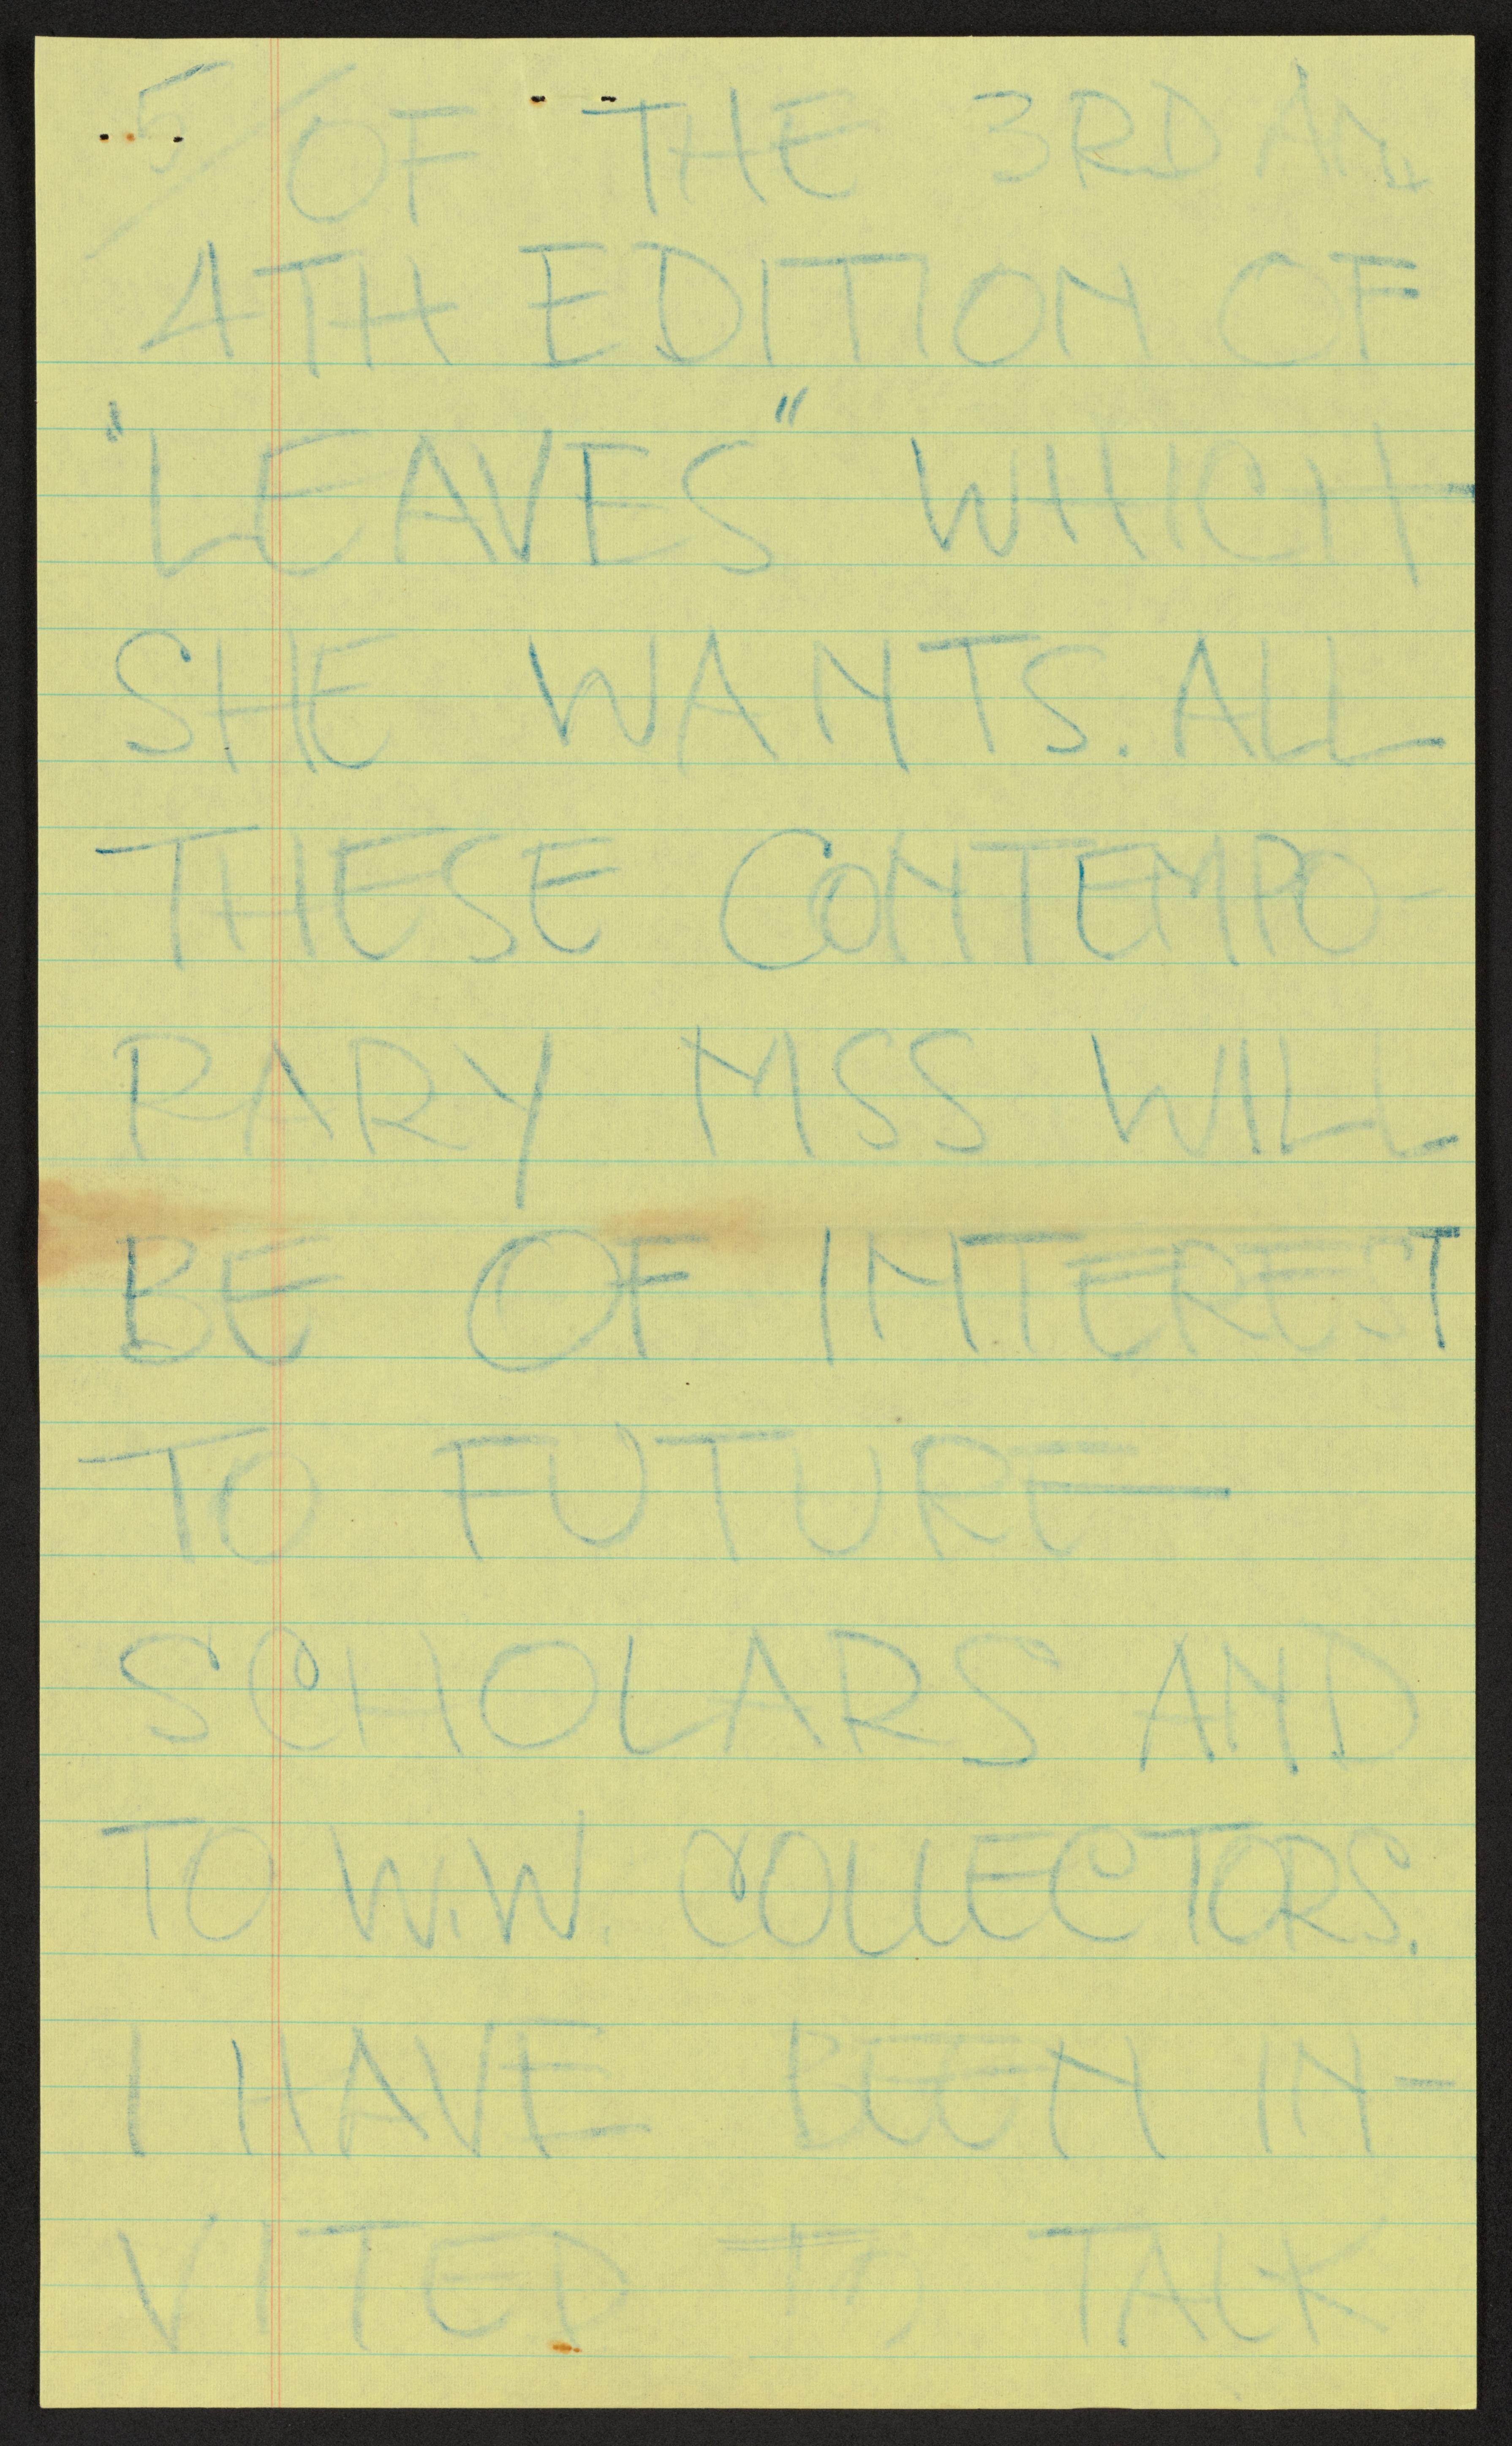 5/ OF THE 3RD AND
4TH EDITION OF
"LEAVES" WHICH
SHE WANTS. ALL
THESE CONTEMPO-
RARY MSS WILL
BE OF INTEREST
TO FUTURE
SCHOLARS AND
TO W.W. COLLECTORS.
I HAVE BEEN IN-
VITED TO TALK